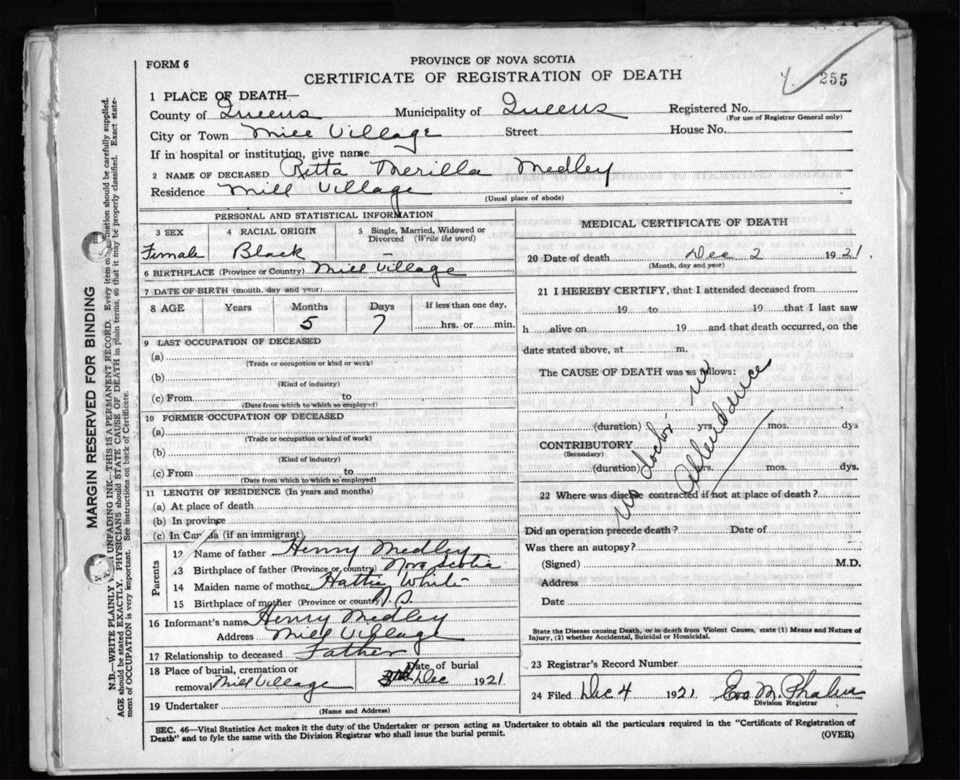 FORM 6
PROVINCE OF NOVA SCOTIA
CERTIFICATE OF REGISTRATION OF DEATH
255
1 PLACE OF DEATH—
County of Queens Municipality of Queens Registered No.
(For use of Registrar General only)
City or Town Mill Village Street House No.
If in hospital or institution, give name
2 NAME OF DECEASED Retta Merilla Medley
Residence Mill Village
(Usual place of abode)
PERSONAL AND STATISTICAL INFORMATION
3 SEX 4 RACIAL ORIGIN 5 Single, Married, Widowed or Divorced (Write the word)
Female Black —
6 BIRTHPLACE (Province or Country) Mill Village
7 DATE OF BIRTH (month, day and year)
8 AGE Years Months Days If less than one day,
5 7 hrs. or min.
9 LAST OCCUPATION OF DECEASED
(a)
(Trade or occupation or kind or work)
(b)
(Kind of industry)
(c) From to
(Date from which to which so employed)
10 FORMER OCCUPATION OF DECEASED
(a)
(Trade or occupation or kind of work)
(b)
(Kind of industry)
(c) From to
(Date from which to which so employed)
11 LENGTH OF RESIDENCE (In years and months)
(a) At place of death
(b) In province
(c) In Canada (if an immigrant)
Parents
12 Name of father Henry Medley
13 Birthplace of father (Province or country) Nova Scotia
14 Maiden name of mother Hattie White
15 Birthplace of mother (Province or country) N.S.
16 Informant's name Henry Medley
Address Mill Village
17 Relationship to deceased Father
18 Place of burial, cremation or Date of burial
removal Mill Village Dec 1921
19 Undertaker
(Name and Address)
MEDICAL CERTIFICATE OF DEATH
20 Date of death Dec 2 1921.
(Month, day and year)
21 I HEREBY CERTIFY, that I attended deceased from
19 to 19 that I last saw
h alive on 19 and that death occurred, on the
date stated above, at m.
The CAUSE OF DEATH was as follows:
No Doctor in
attendance
(duration) yrs. mos. dys
CONTRIBUTORY
(Secondary)
(duration) yrs. mos. dys.
22 Where was disease contracted if not at place of death?
Did an operation precede death? Date of
Was there an autopsy?
(Signed) M.D.
Address
Date
State the Disease causing Death, or in death from Violent Causes, state (1) Means and Nature of
Injury, (2) whether Accidental, Suicidal or Homicidal.
23 Registrar's Record Number
24 Filed Dec 4 1921 M.
Division Registrar
SEC. 46—Vital Statistics Act makes it the duty of the Undertaker or person acting as Undertaker to obtain all the particulars required in the "Certificate of Registration of
Death" and to fyle the same with the Division Registrar who shall issue the burial permit. (OVER)
MARGIN RESERVED FOR BINDING
N.B.—WRITE PLAINLY UNFADING INK—THIS IS A PERMANENT RECORD. Every item information should be carefully supplied.
AGE should be stated EXACTLY. PHYSICIANS should STATE CAUSE OF DEATH in plain terms, so that it may be properly classified. Exact state-
ment of OCCUPATION is very important. See instructions on back of Certificate.